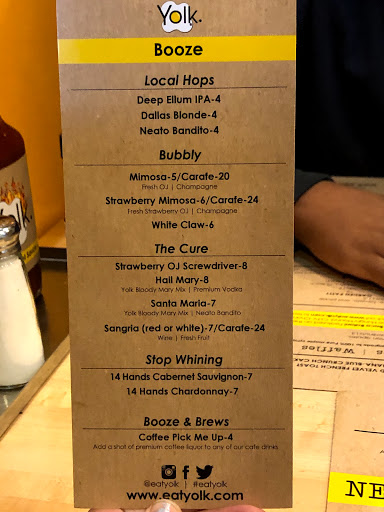 Yolk.
Booze
Local Hops
Deep Ellum IPA-4
Dallas Blonde-4
Neato Bandito-4
Bubbly
Mimosa-5/Carafe-20
Fresh OJ | Champagne
Strawberry Mimosa-6/Carafe-24
Fresh Strawberry OJ | Champagne
White Claw-6
The Cure
Strawberry OJ Screwdriver-8
Hail Mary-8
Yolk Bloody Mary Mix | Premium Vodka
Santa Maria-7
Yolk Bloody Mary Mix | Neato Bandito
Sangria (red or white)-7/Carafe-24
Wine | Fresh Fruit
Stop Whining
14 Hands Cabernet Sauvignon-7
14 Hands Chardonnay-7
Booze & Brews
Coffee Pick Me Up-4
Add a shot of premium coffee liquor to any of our cafe drinks
@eatyolk | #eatyolk
www.eatyolk.com
Yolk.
Waffles
VELVET FRENCH TOAST
NE